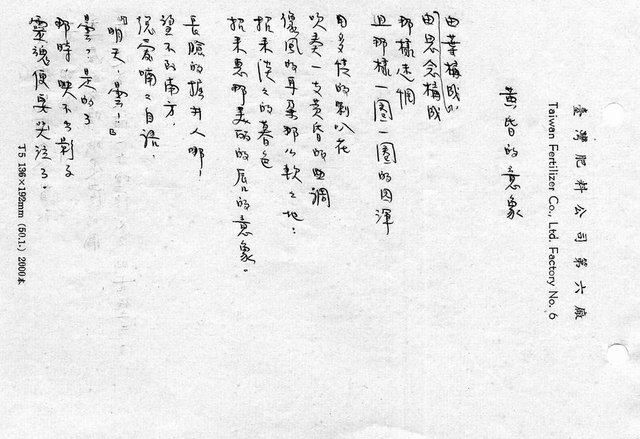 臺灣肥料公司第六廠
Taiwan Fertilizer Co., Ltd. Factory No. 6
黃昏的意象
由葉構成的
由思念構成
那樣迷惘
且那樣一圈一圈的圓渾
用多情的喇叭花
吹奏一支黃昏的曲調
像風的耳朵那么軟軟地：
招來淡淡的暮色
招來惠那美麗的唇的意象。
長臉的掘井人哪！
望不到南方，
總愛喃喃自語，
『明天，雲！』
雲？是的了
那時 映不出影子
靈魂便要哭泣了。
T5 136×192mm (50.1.) 2000本